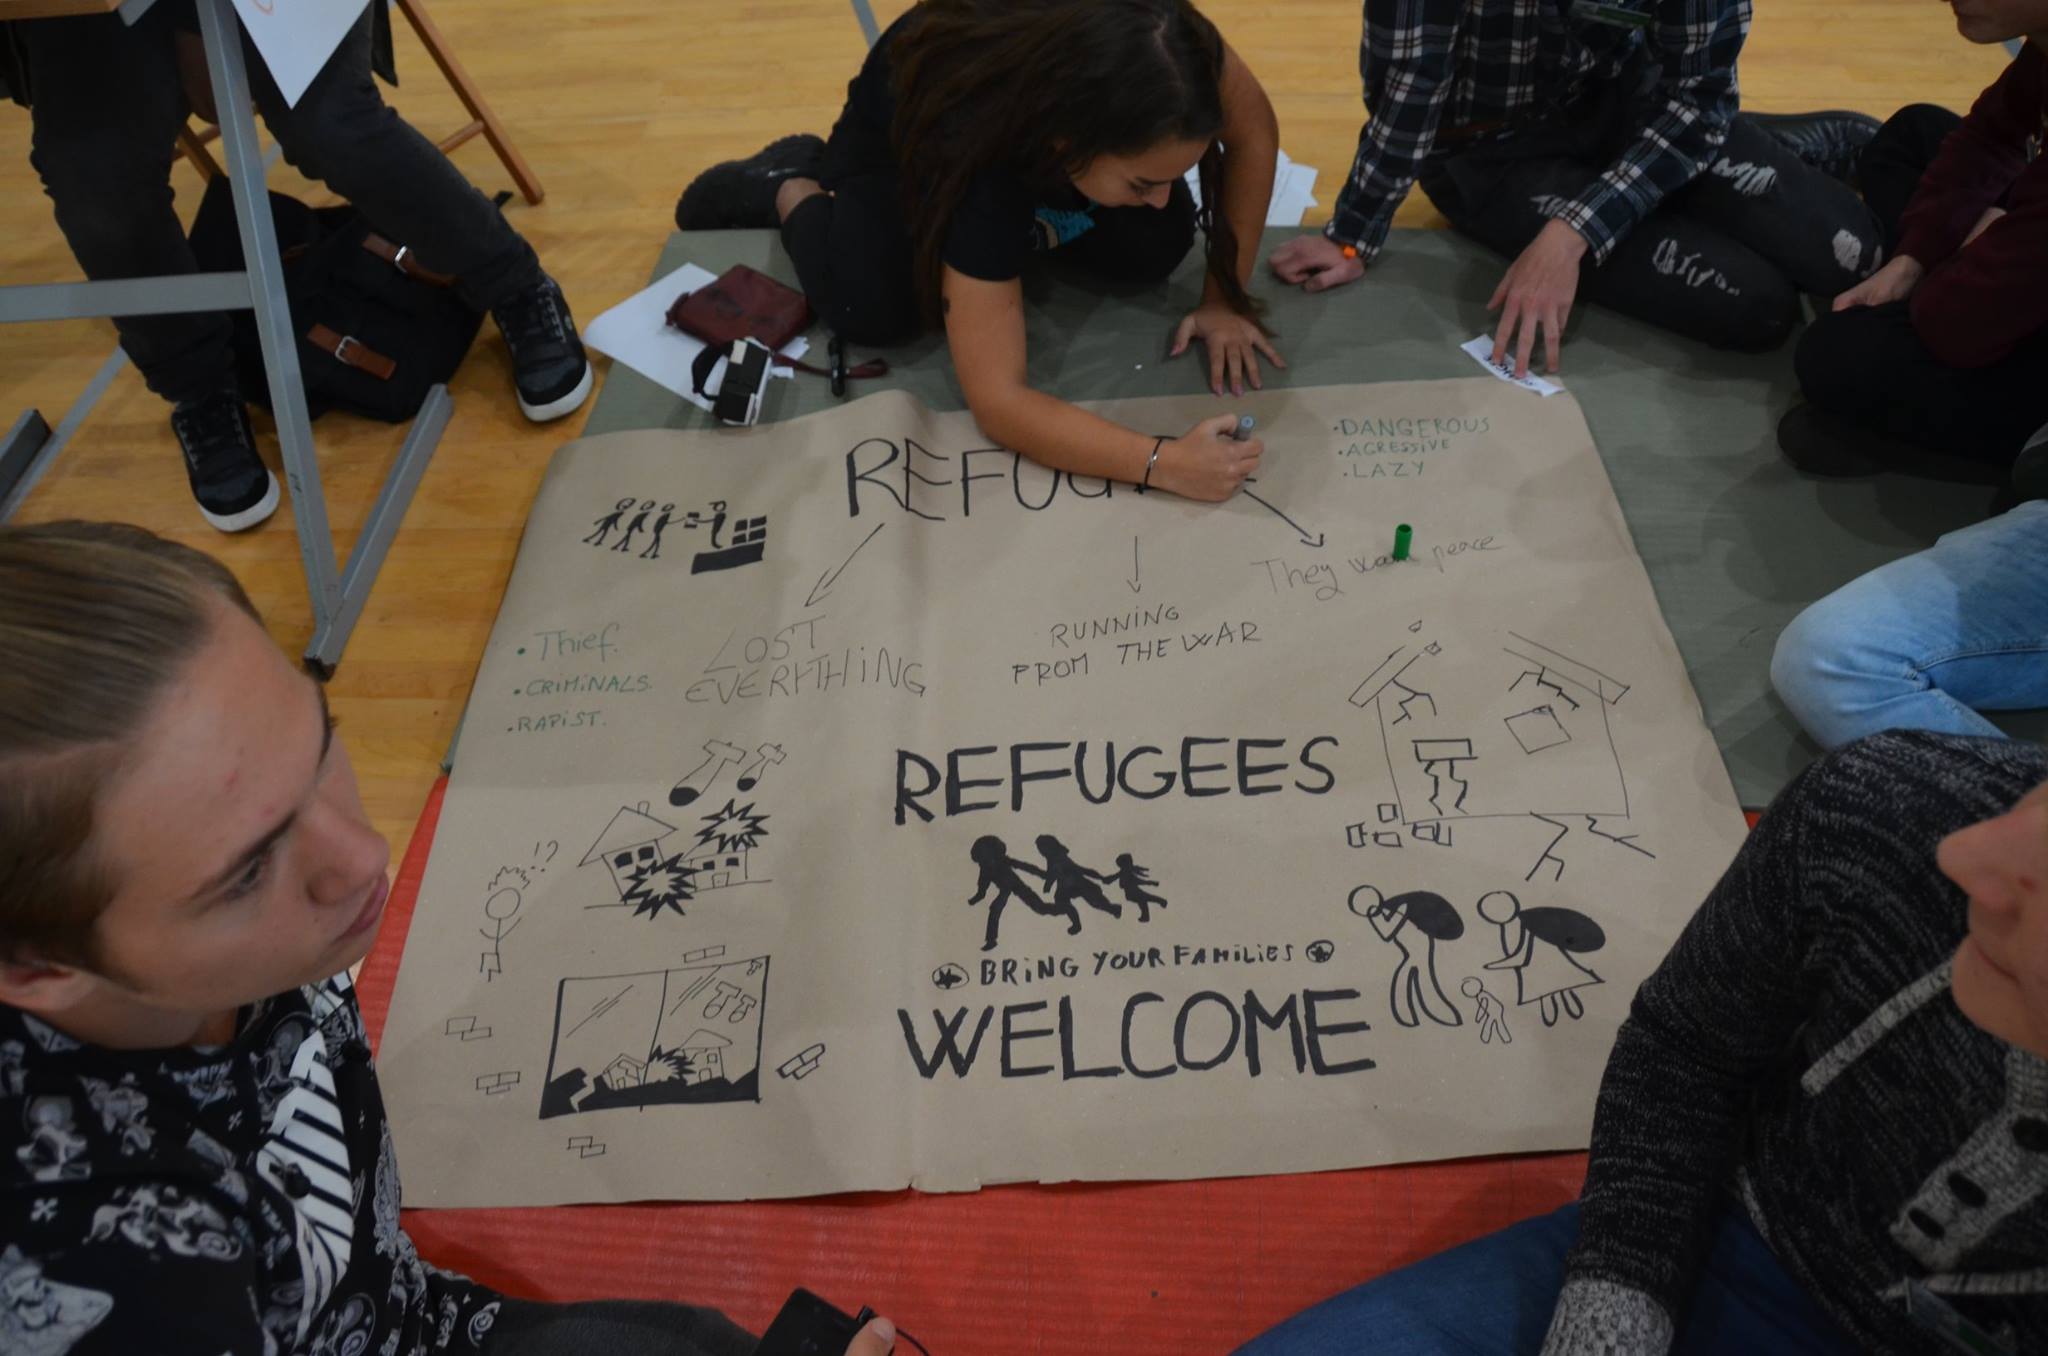 REFUG
• DANGEROUS
• AGRESSiVE
• LAZY
They peace
• Thief.
• CRiMiNALS.
• RAPiST.
LOST
EVERYTHiNG
RUNNiNG
FROM THE WAR
REFUGEES
!?
BRiNG YOUR FAMiLiES
WELCOME